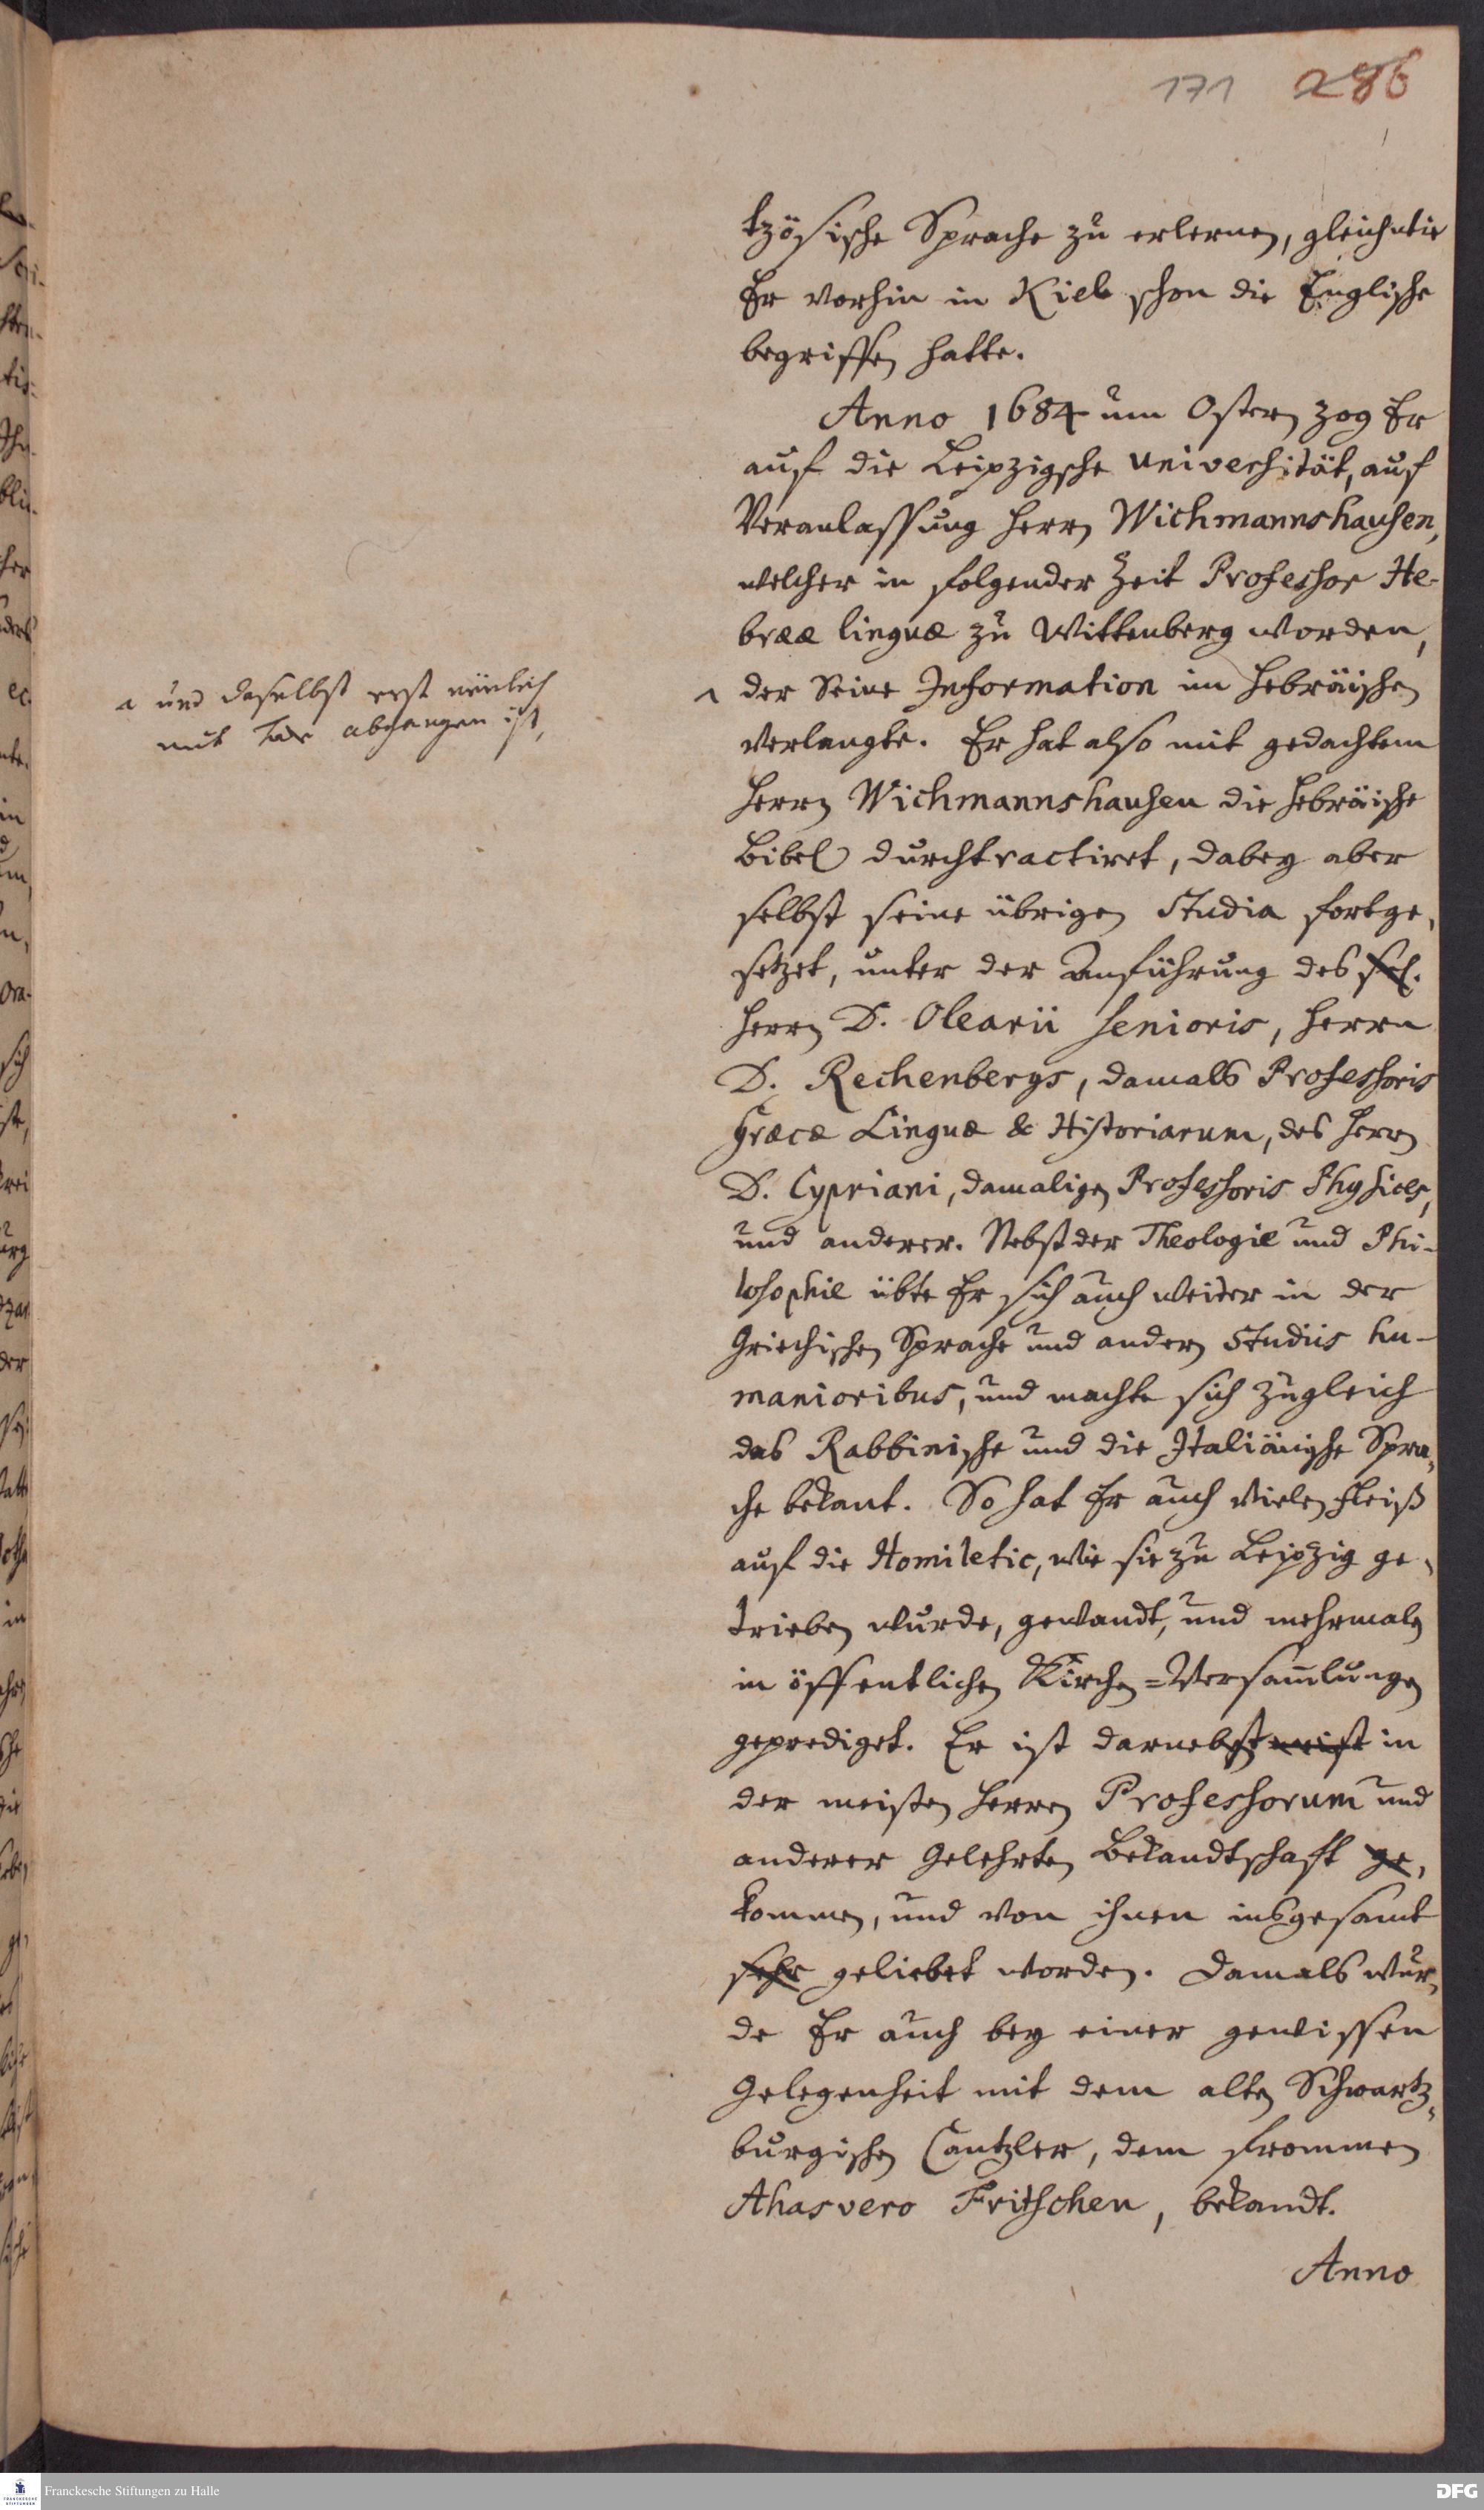 171 286
tzösische Sprache zu erlernen, gleichwie
Er vorhin in Kiel schon die Englische
begriffen hatte.
Anno 1684 um Ostern zog Er
auf die Leipzigsche Universität, auf
Veranlassung Herrn Wichmannshausen,
welcher in folgender Zeit Professor He-
brææ linguæ zu Wittenberg worden,
und daselbst erst neulich
mit Tode abgangen ist,
der Seine Information im Hebräischen
verlangte. Er hat also mit gedachtem
Herrn Wichmannshausen die Hebräische
Bibel durchtractiret, dabey aber
selbst seine übrigen Studia fortge-
setzet, unter der Anführung des sel.
Herrn D. Olearii Senioris, Herrn
D. Rechenbergs, damals Professoris
Græcæ Linguæ & Historiarum, des Herrn
D. Cypriani, damaligen Professoris Physices,
und anderer. Nebst der Theologie und Phi-
losophie übte Er sich auch weiter in der
Griechischen Sprache und andern Studiis hu-
manioribus, und machte sich zugleich
das Rabbinische und die Italiänische Spra-
che bekant. So hat Er auch vielen Fleiß
auf die Homiletic, wie sie zu Leipzig ge-
trieben wurde, gewandt, und mehrmals
in öffentlichen Kirchen=Versam̄lungen
geprediget. Er ist darnebst in
der meisten Herren Professorum und
anderer Gelehrten Bekandtschaft ge-
kommen, und von ihnen insgesamt
sehr geliebet worden. Damals wur-
de Er auch bey einer gewissen
Gelegenheit mit dem alten Schwartz-
burgischen Cantzler, dem frommen
Ahasvero Fritschen, bekandt.
Anno
Franckesche Stiftungen zu Halle
DFG